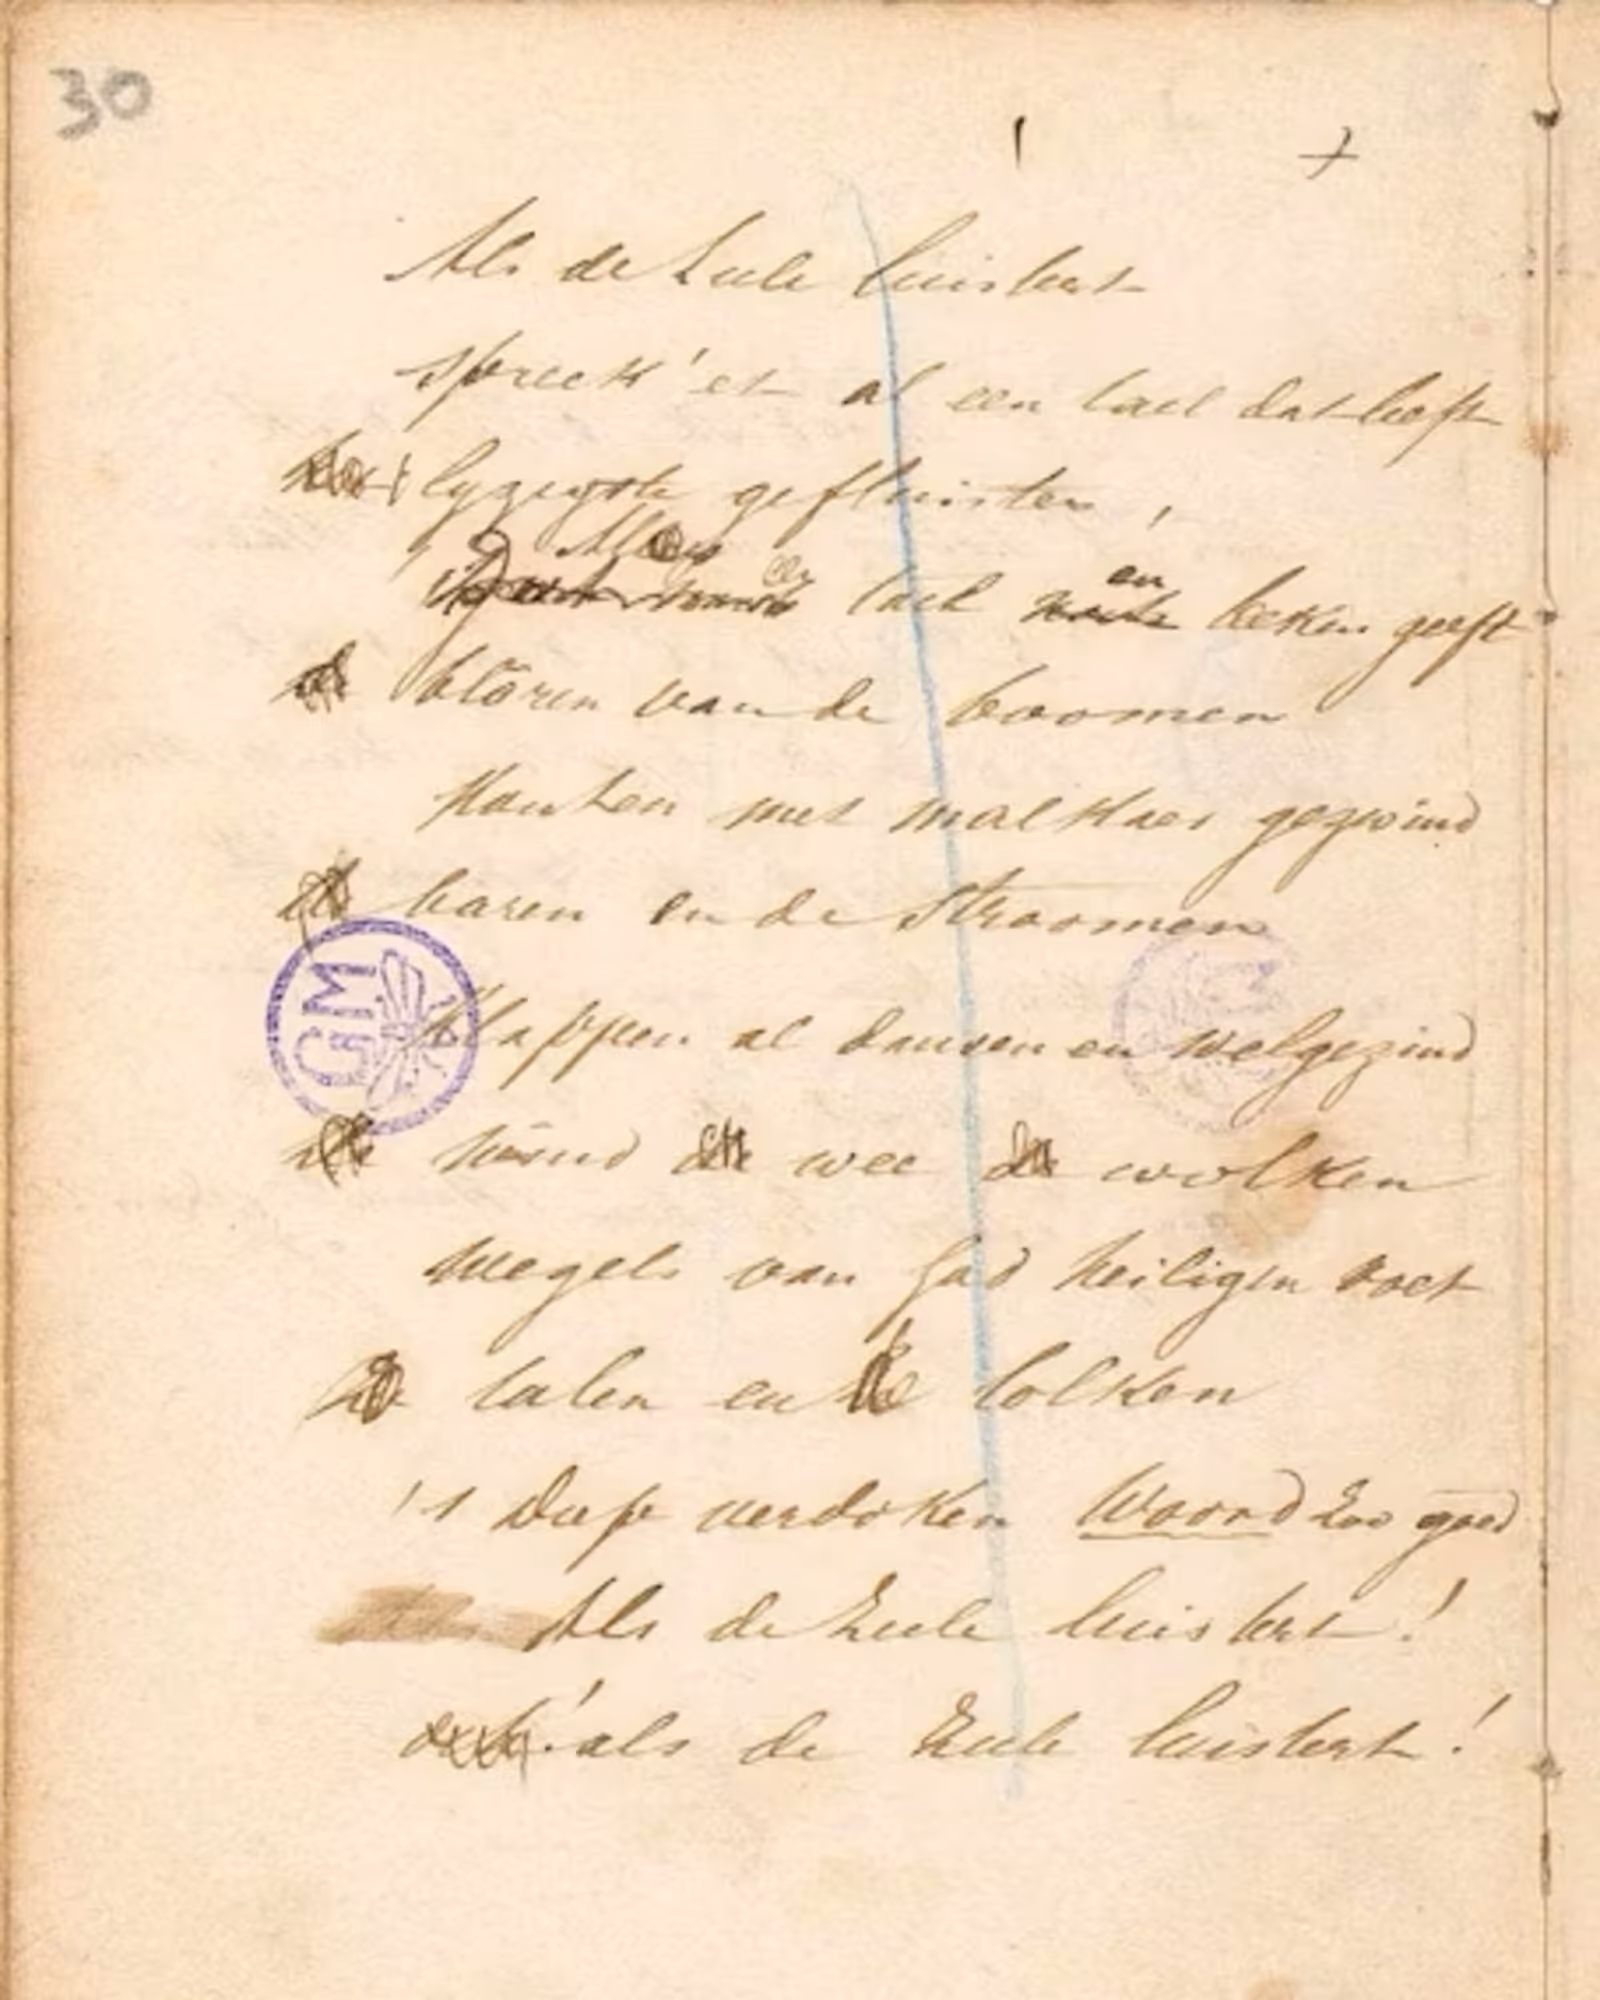 30
Als de Ziele luistert
spreekt 'et al een taal dat leeft
lyzigste gefluister,
ook een
taal en teeken geeft
blâren van de boomen
kouten met malkaer gezwind
baren en de stroomen
klappen al dansen en welgezind
wind wee wolken
wegels van God heiligen voet
talen en tolken
't diep verdoken Woord zoo goed
Als de Ziele luistert!
als de Ziele luistert!
GM